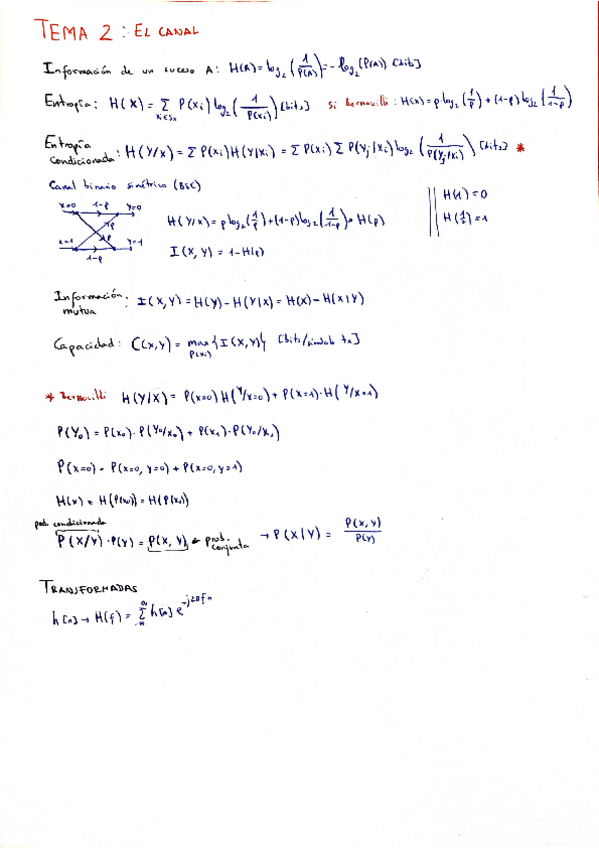 TEMA 2: EL CANAL
Información de un suceso A: H(A) = log₂ (1/P(A)) = -log₂(P(A)) [bits]
Entropía: H(X) = Σ_{xi∈Sx} P(xi) log₂ (1/P(xi)) [bits] si Bernouilli: H(x) = p log₂ (1/p) + (1-p) log₂ (1/1-p)
Entropía condicionada: H(Y/x) = Σ P(xi) H(Y|xi) = Σ P(xi) Σ P(yj|xi) log₂ (1/P(yj/xi)) [bits] *
Canal binario simétrico (BSC)
x=0 1-p y=0
p
p
x=1 1-p y=1
H(Y/x) = p log₂ (1/p) + (1-p) log₂ (1/1-p) = H(p)
I(X,Y) = 1 - H(p)
H(1) = 0
H(1/2) = 1
Información mutua: I(X,Y) = H(Y) - H(Y|X) = H(X) - H(X|Y)
Capacidad: C(X,Y) = max_{P(xi)} {I(X,Y)} [bits/símbolo tx]
* Bernouilli H(Y/X) = P(x=0) H(Y/x=0) + P(x=1)·H(Y/x=1)
P(Y₀) = P(x₀)·P(Y₀/x₀) + P(x₁)·P(Y₀/x₁)
P(x=0) = P(x=0, y=0) + P(x=0, y=1)
H(x) = H(P(x₀)) = H(P(x₁))
prob. condicionada
P(X/Y)·P(Y) = P(X,Y) ← prob. conjunta → P(X|Y) = P(X,Y)/P(Y)
TRANSFORMADAS
h[n] → H(f) = Σ_{-∞}^{∞} h[n] e^{-j2πfn}